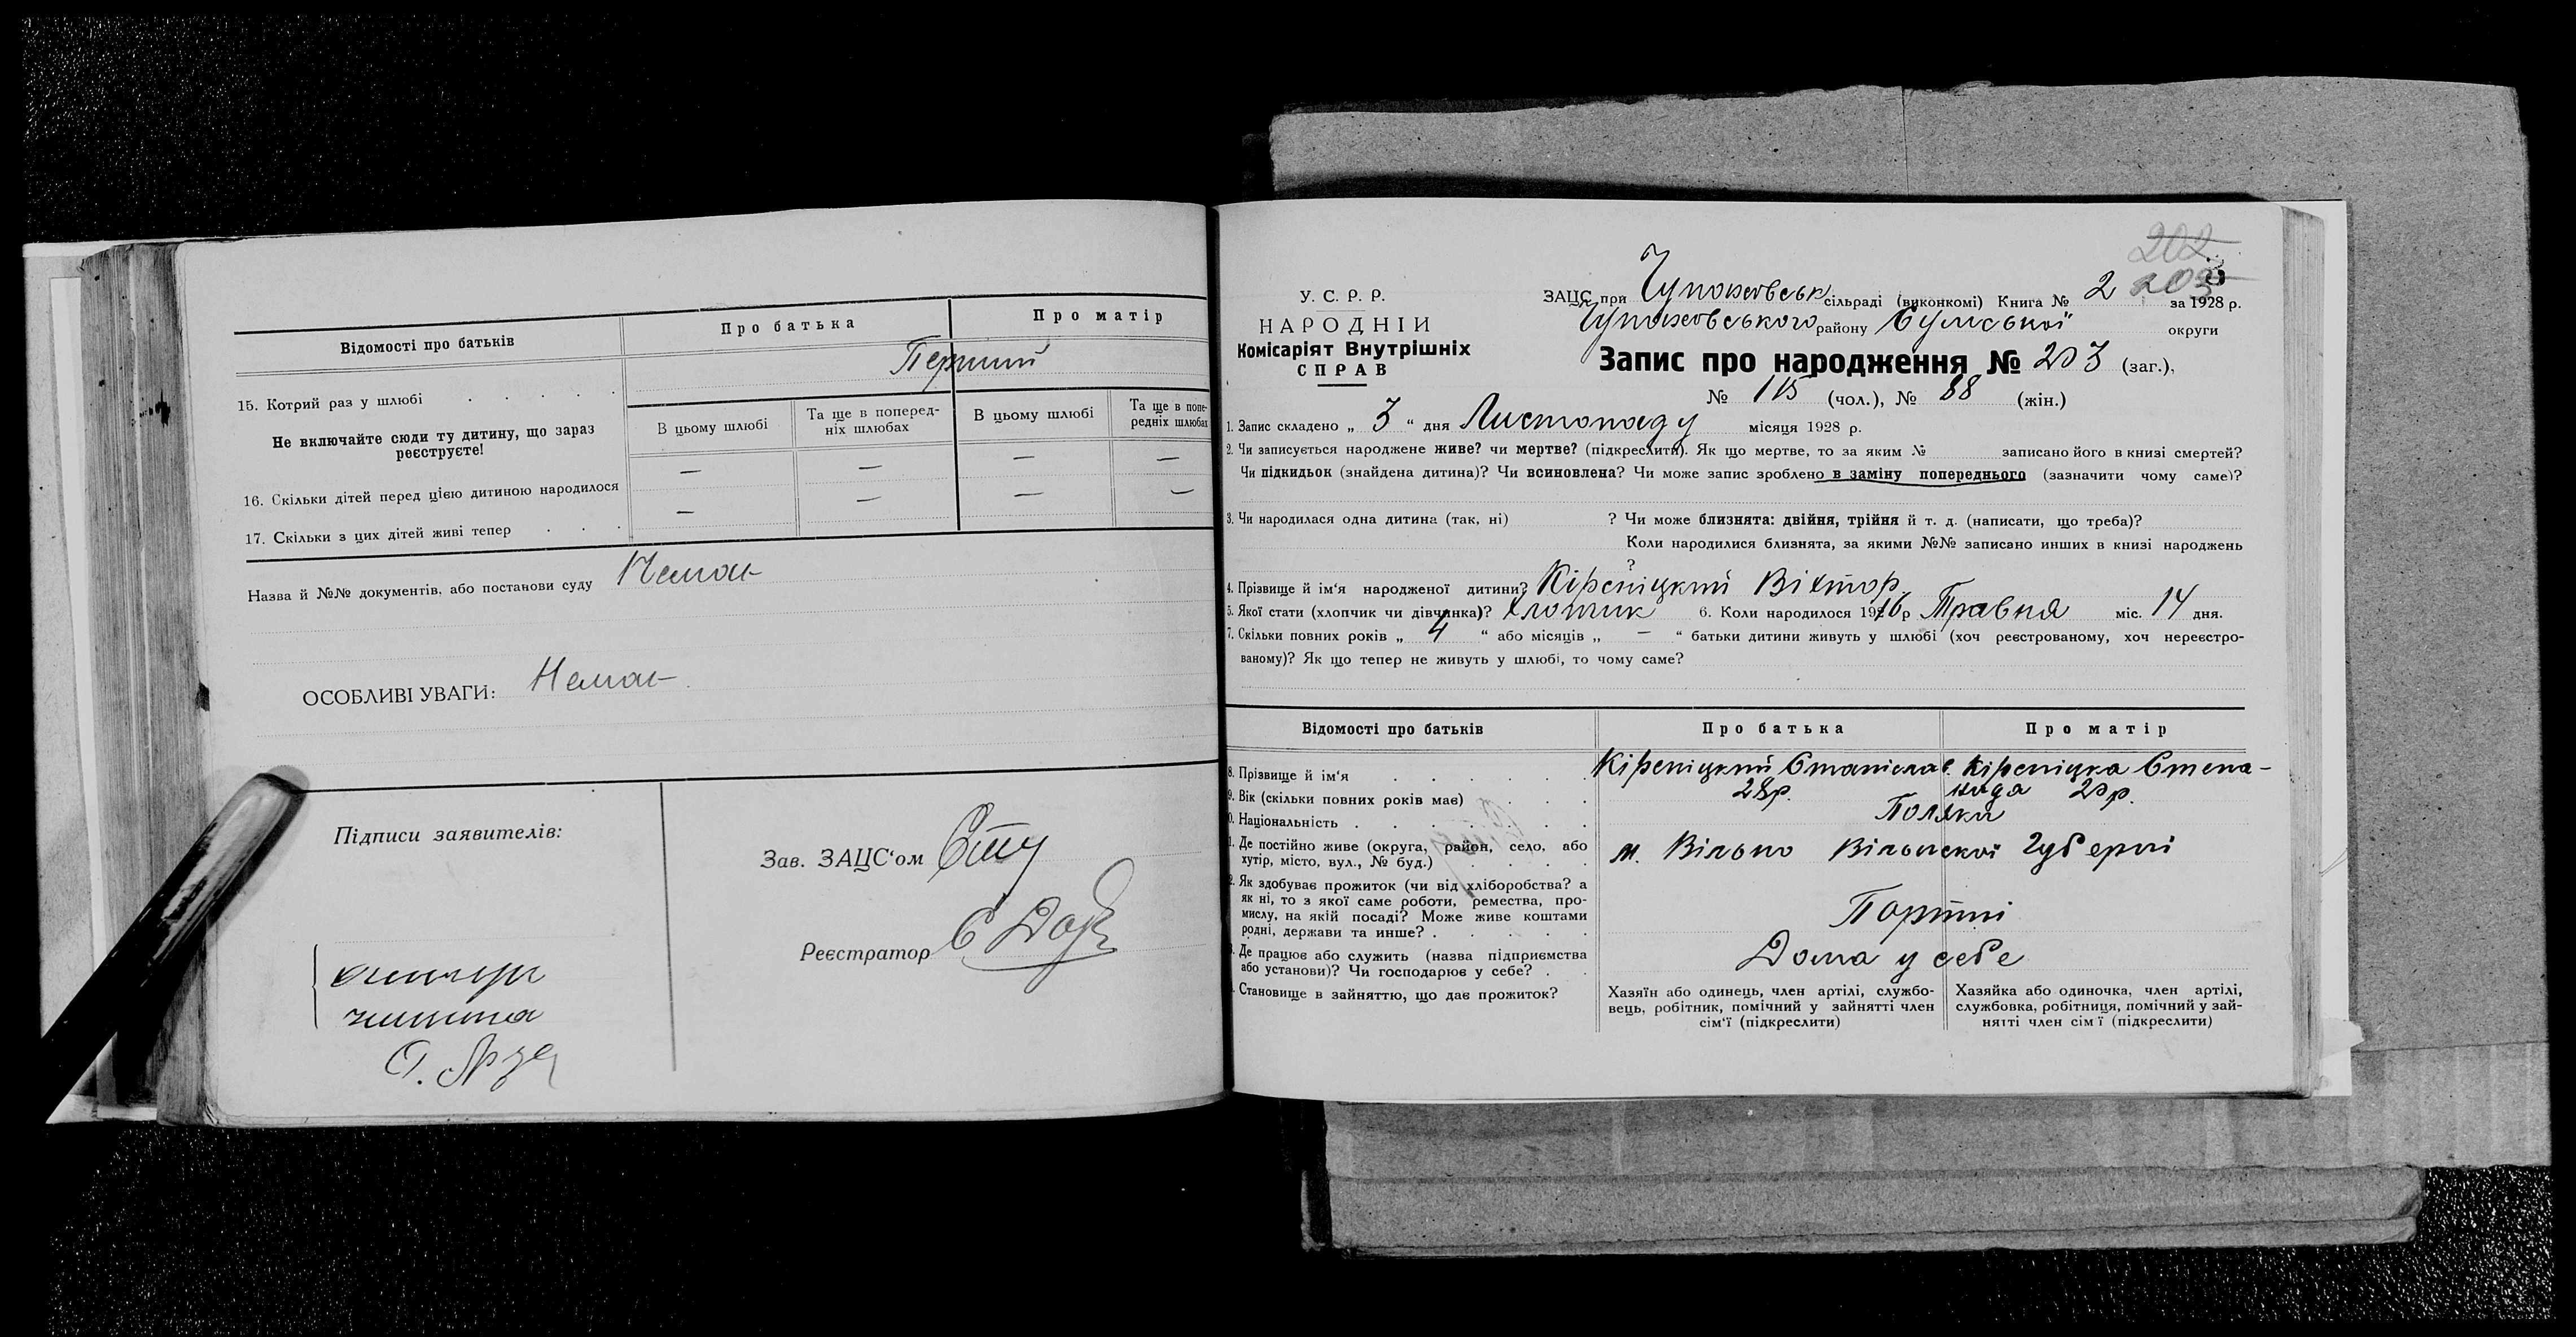 Відомості про батьків
Про батька
Про матір
15. Котрий раз у шлюбі . . . . .
Перший
Не включайте сюди ту дитину, що зараз
реєструєте!
В цьому шлюбі
Та ще в поперед-
ніх шлюбах
В цьому шлюбі
Та ще в попе-
редніх шлюбах
16. Скільки дітей перед цією дитиною народилося — — — —
17. Скільки з цих дітей живі тепер . . . — — — —
Назва й №№ документів, або постанови суду Немає
ОСОБЛИВІ УВАГИ: Немає
Підписи заявителів:
Зав. ЗАЦС'ом
Реєстратор
202
203
У. С. Р. Р.
НАРОДНІЙ
Комісаріят Внутрішніх
СПРАВ
ЗАЦС при сільраді (виконкомі) Книга № 2 за 1928 р.
району Сумської округи
Запис про народження № 203 (заг.),
№ 115 (чол.), № 88 (жін.)
1. Запис складено „ 3 “ дня Листопаду місяця 1928 р.
2. Чи записується народжене живе? чи мертве? (підкреслити). Як що мертве, то за яким № записано його в книзі смертей?
Чи підкидьок (знайдена дитина)? Чи всиновлена? Чи може запис зроблено в заміну попереднього (зазначити чому саме)?
3. Чи народилася одна дитина (так, ні) ? Чи може близнята: двійня, трійня й т. д. (написати, що треба)?
Коли народилися близнята, за якими №№ записано инших в книзі народжень
?
4. Прізвище й ім'я народженої дитини? Кіреніцкий Віктор
5. Якої стати (хлопчик чи дівчинка)? Хлопчик 6. Коли народилося 1916 р Травня міс. 14 дня.
7. Скільки повних років „ 4 “ або місяців „ — “ батьки дитини живуть у шлюбі (хоч реєстрованому, хоч нереєстро-
ваному)? Як що тепер не живуть у шлюбі, то чому саме?
Відомості про батьків
Про батька
Про матір
8. Прізвище й ім'я . . . . . . Кіреніцкий Станіслав. Кіреніцка Степа-
нида
9. Вік (скільки повних років має) . . . 28р. 20р.
0. Національність . . . . . . . Поляки
1. Де постійно живе (округа, район, село, або
хутір, місто, вул., № буд.) . . . .
м. Вільно Віленскої губерні
2. Як здобуває прожиток (чи від хліборобства? а
як ні, то з якої саме роботи, ремества, про-
мислу, на якій посаді? Може живе коштами
родні, держави та инше? . . . . .
Портні
3. Де працює або служить (назва підприємства
або установи)? Чи господарює у себе? . .
Дома у себе
Становище в зайняттю, що дає прожиток?
Хазяїн або одинець, член артілі, службо-
вець, робітник, помічний у зайнятті член
сім'ї (підкреслити)
Хазяйка або одиночка, член артілі,
службовка, робітниця, помічний у зай-
нятті член сім'ї (підкреслити)